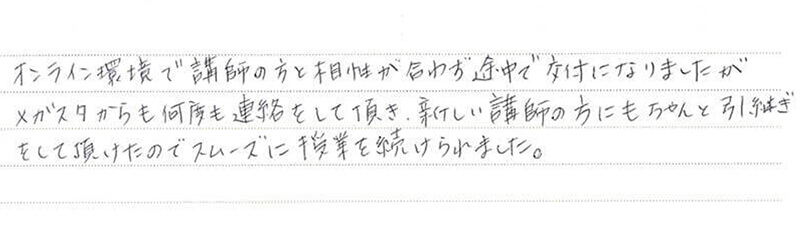 オンライン環境で講師の方と相性が合わず途中で交付になりましたが
メガスタからも何度も連絡をして頂き、新しい講師の方にもちゃんと引継ぎ
をして頂けたのでスムーズに授業を続けられました。